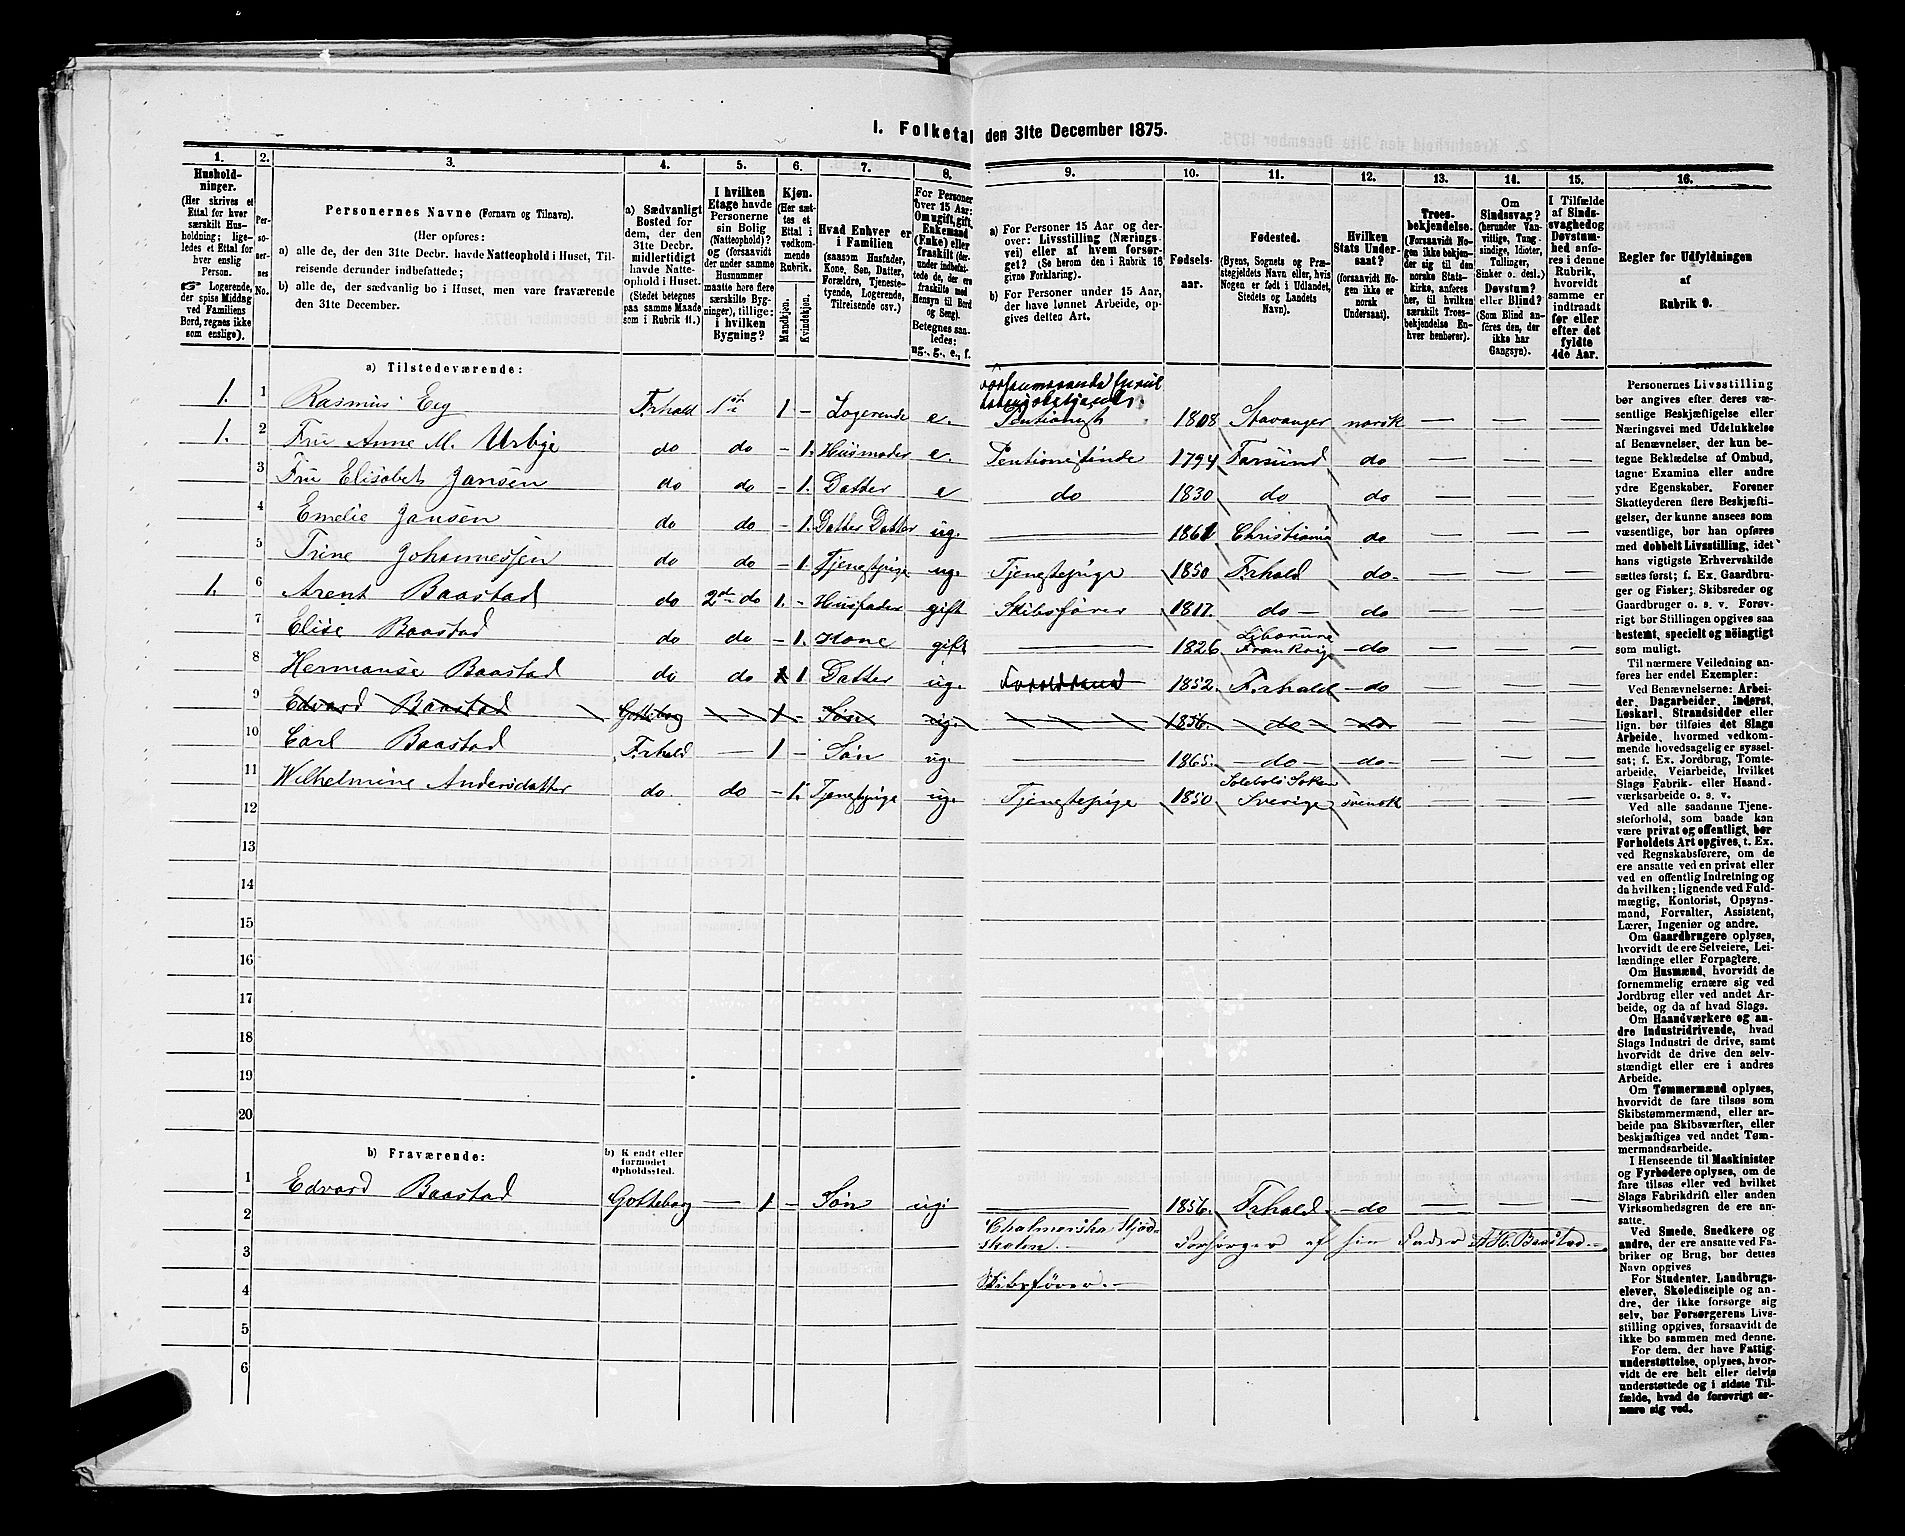 1. Folketal den 31te December 1875.
1. 2. 3. 4. 5. 6. 7. 8. 9. 10. 11. 12. 13. 14. 15. 16.
Husholdninger. (Her skrives et Ettal for hver særskilt Husholdning; ligeledes et Ettal for hver enslig Person. ☞ Logerende, der spise Middag ved Familiens Bord, regnes ikke som enslige).
Personernes No.
Personernes Navne (Fornavn og Tilnavn).
(Her opføres:
a) alle de, der den 31te Decbr. havde Natteophold i Huset, Tilreisende derunder indbefattede;
b) alle de, der sædvanlig bo i Huset, men vare fraværende den 31te December.
a) Sædvanligt Bosted for dem, der den 31te Decbr. midlertidigt havde Natteophold i Huset. (Stedet betegnes paa samme Maade som i Rubrik 11.)
I hvilken Etage havde Personerne sin Bolig (Natteophold)? og (forsaavidt der under samme Husnummer maatte høre flere særskilte Bygninger), tillige: i hvilken Bygning?
Kjøn. (Her sættes et Ettal i vedkommende Rubrik. Mandkjøn. Kvindekjøn.
Hvad Enhver er i Familien (saasom Husfader, Kone, Søn, Datter, Forældre, Tjenestetyende, Logerende, Tilreisende osv.)
For Personer over 15 Aar: Om ugift, gift, Enkemand (Enke) eller fraskilt (derunder indbefattede de, der ere fraskilte med Hensyn til Bord og Seng). Betegnes saaledes: ug., g., e., f.
a) For Personer 15 Aar og derover: Livsstilling (Næringsvei) eller af hvem forsørget? (Se herom den i Rubrik 16 givne Forklaring).
b) For Personer under 15 Aar, der have lønnet Arbeide, opgives dettes Art.
Fødselsaar.
Fødested. (Byens, Sognets og Præstegjeldets Navn eller, hvis Nogen er født i Udlandet, Stedets og Landets Navn).
Hvilken Stats Undersaat? (forsaavidt Nogen ikke er norsk Undersaat).
Troesbekjendelse. (Forsaavidt Nogen ikke bekjender sig til den norske Statskirke, anføres her, til hvilken særskilt Troesbekjendelse Enhver henhører).
Om Sindssvag? (herunder Vanvittige, Tungsindige, Idioter, Tullinger, Sinker o. desl.) Døvstum? eller Blind? (Som Blind anføres den, der ikke har Gangsyn).
I Tilfælde af Sindssvaghed og Døvstumhed anføres i denne Rubrik, hvorvidt samme er indtraadt før eller efter det fyldte 4de Aar.
Regler for Udfyldningen af Rubrik 9.
a) Tilstedeværende:
1. 1 Rasmus Eeg Frhald 1ste 1 - Logerende e. 1808 Stavanger norsk — — —
1. 2 Fru Anne M. Urbye do do - 1. Husmoder e. Pentionistinde 1794 Farsund do — — —
3 Fru Elisabet Jansen do do - 1. Datter e do 1830 do do — — —
4 Emelie Jansen do do - 1. Datter Datter ug. — 1861 Christiania do — — —
5 Trine Johannessen do do - 1. Tjenestepige ug. Tjenestepige 1850 Frhald do — — —
1. 6 Arent Baastad do 2den do 1. - Husfader gift Skibsfører 1817. do do — — —
7 Elise Baastad do do - 1. Kone gift — 1826 Frankrige do — — —
8 Hermanse Baastad do do 1 Datter ug. 1852. Frhald do — — —
9 Edvard Baastad Gotteborg — 1 - Søn ug. — 1856. do do — — —
10 Carl Baastad Frhald — 1 - Søn ug. — 1865. do do — — —
11 Wilhelmine Andersdatter do. do - 1. Tjenestepige ug. Tjenestepige 1850. Sverige svensk — — —
12
13
14
15
16
17
18
19
20
b) Fraværende:
b) Kjendt eller formodet Opholdssted.
1 Edvard Baastad Gotteborg — 1 - Søn ug. 1856. Frhald. do — — —
2 Chalmerska Sløjdskolen. — Forsørges af sin Fader A. H. Baastad
3 Skibsfører. —
4
5
6
Personernes Livsstilling bør angives efter deres væsentlige Beskjæftigelse eller Næringsvei med Udelukkelse af Benævnelser, der kun betegne Beklædelse af Ombud, tagne Examina eller andre ydre Egenskaber. Forener Skatteyderen flere Beskjæftigelser, der kunne ansees som væsentlige, bør han opføres med dobbelt Livsstilling, idet hans vigtigste Erhvervskilde sættes først; f. Ex. Gaardbruger og Fisker; Skibsreder og Gaardbruger o. s. v. Forøvrigt bør Stillingen opgives saa bestemt, specielt og nøiagtigt som muligt.
Til nærmere Veiledning anføres her endel Exempler:
Ved Benævnelserne: Arbeider, Dagarbeider, Inderst, Løskarl, Strandsidder eller lign. bør tilføies det Slags Arbeide, hvormed vedkommende hovedsagelig er sysselsat; f. Ex. Jordbrug, Tomtearbeide, Veiarbeide, hvilket Slags Fabrik- eller Haandværksarbeide o. s. v.
Ved alle saadanne Tjenesteforhold, som baade kan være privat og offentligt, bør Forholdets Art opgives, t. Ex. ved Regnskabsførere, om de ere ansatte ved en privat eller ved en offentlig Indretning og da hvilken; lignende ved Fuldmægtig, Kontorist, Opsynsmand, Forvalter, Assistent, Lærer, Ingeniør og andre.
Om Gaardbrugere oplyses, hvorvidt de ere Selveiere, Leilændinge eller Forpagtere.
Om Husmænd, hvorvidt de fornemmelig ernære sig ved Jordbrug eller ved andet Arbeide, og da af hvad Slags.
Om Haandværkere og andre Industridrivende, hvad Slags Industri de drive, samt hvorvidt de drive den selvstændigt eller ere i andres Arbeide.
Om Tømmermænd oplyses, hvorvidt de fare tilsøs som Skibstømmermænd, eller arbeide paa Skibsværfter, eller beskjæftiges ved andet Tømmermandsarbeide.
I Henseende til Maskinister og Fyrbødere oplyses, om de fare tilsøs eller ved hvilket Slags Fabrikdrift eller anden Virksomhedsgren de ere ansatte.
Ved Smede, Snedkere og andre, der ere ansatte ved Fabriker og Brug, bør dettes Navn opgives
For Studenter, Landbrugselever, Skoledisciple og andre, der ikke forsørge sig selv, bør Forsørgerens Livsstilling opgives, forsaavidt de ikke bo sammen med denne.
For dem, der have Fattigunderstøttelse, oplyses, hvorvidt de ere helt eller delvis understøttede og i sidste Tilfælde, hvad de forøvrigt ernære sig ved.